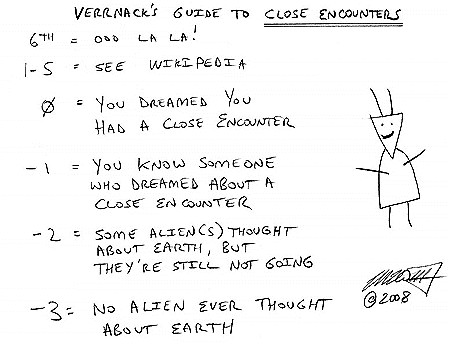 VERRNACK'S GUIDE TO CLOSE ENCOUNTERS
6TH = OOO LA LA!
1-5 = SEE WIKIPEDIA
Ø = YOU DREAMED YOU
HAD A CLOSE ENCOUNTER
-1 = YOU KNOW SOMEONE
WHO DREAMED ABOUT A
CLOSE ENCOUNTER
-2 = SOME ALIEN(S) THOUGHT
ABOUT EARTH, BUT
THEY'RE STILL NOT GOING
-3 = NO ALIEN EVER THOUGHT
ABOUT EARTH
©2008